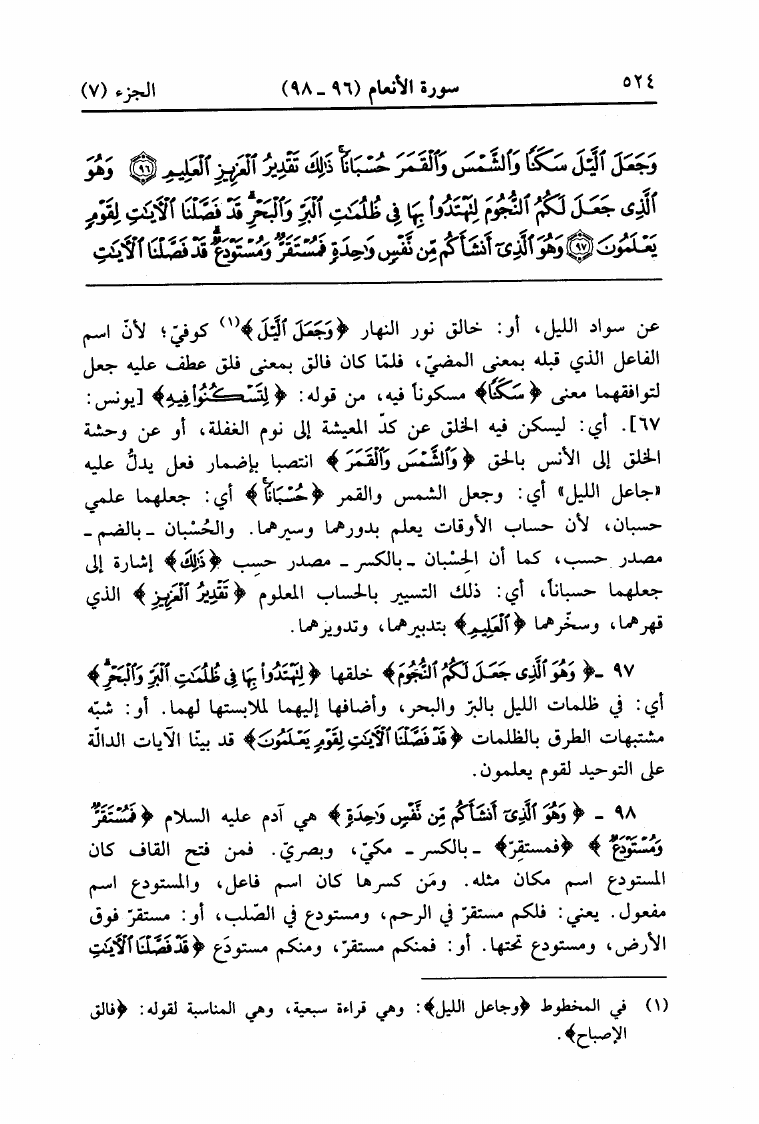 ٥٢٤
سورة الأنعام (٩٦ ـ ٩٨)
الجزء (٧)
وَجَعَلَ ٱلَّيْلَ سَكَنًا وَٱلشَّمْسَ وَٱلْقَمَرَ حُسْبَانًا ۚ ذَٰلِكَ تَقْدِيرُ ٱلْعَزِيزِ ٱلْعَلِيمِ ٩٦ وَهُوَ
ٱلَّذِى جَعَلَ لَكُمُ ٱلنُّجُومَ لِتَهْتَدُوا۟ بِهَا فِى ظُلُمَـٰتِ ٱلْبَرِّ وَٱلْبَحْرِ ۗ قَدْ فَصَّلْنَا ٱلْـَٔايَـٰتِ لِقَوْمٍ
يَعْلَمُونَ ٩٧ وَهُوَ ٱلَّذِىٓ أَنشَأَكُم مِّن نَّفْسٍ وَٰحِدَةٍ فَمُسْتَقَرٌّ وَمُسْتَوْدَعٌ ۗ قَدْ فَصَّلْنَا ٱلْـَٔايَـٰتِ
عن سواد الليل، أو: خالق نور النهار ﴿وَجَعَلَ ٱلَّيْلَ﴾(١) كوفيّ؛ لأنّ اسم
الفاعل الذي قبله بمعنى المضيّ، فلمّا كان فالق بمعنى فلق عطف عليه جعل
لتوافقهما معنى ﴿سَكَنًا﴾ مسكوناً فيه، من قوله: ﴿لِتَسْكُنُوا۟ فِيهِ﴾ [يونس:
٦٧]. أي: ليسكن فيه الخلق عن كدّ المعيشة إلى نوم الغفلة، أو عن وحشة
الخلق إلى الأنس بالحق ﴿وَٱلشَّمْسَ وَٱلْقَمَرَ﴾ انتصبا بإضمار فعل يدلُّ عليه
«جاعل الليل» أي: وجعل الشمس والقمر ﴿حُسْبَانًا ۚ﴾ أي: جعلهما علمي
حسبان، لأن حساب الأوقات يعلم بدورهما وسيرهما. والحُسْبان ـ بالضم ـ
مصدر حسب، كما أن الحِسْبان ـ بالكسر ـ مصدر حسِب ﴿ذَٰلِكَ﴾ إشارة إلى
جعلهما حسباناً، أي: ذلك التسيير بالحساب المعلوم ﴿تَقْدِيرُ ٱلْعَزِيزِ﴾ الذي
قهرهما، وسخّرهما ﴿ٱلْعَلِيمِ﴾ بتدبيرهما، وتدويرهما.
٩٧ ـ ﴿وَهُوَ ٱلَّذِى جَعَلَ لَكُمُ ٱلنُّجُومَ﴾ خلقها ﴿لِتَهْتَدُوا۟ بِهَا فِى ظُلُمَـٰتِ ٱلْبَرِّ وَٱلْبَحْرِ ۗ﴾
أي: في ظلمات الليل بالبرّ والبحر، وأضافها إليهما لملابستها لهما. أو: شبّه
مشتبهات الطرق بالظلمات ﴿قَدْ فَصَّلْنَا ٱلْـَٔايَـٰتِ لِقَوْمٍ يَعْلَمُونَ﴾ قد بيّنا الآيات الدالّة
على التوحيد لقوم يعلمون.
٩٨ ـ ﴿وَهُوَ ٱلَّذِىٓ أَنشَأَكُم مِّن نَّفْسٍ وَٰحِدَةٍ﴾ هي آدم عليه السلام ﴿فَمُسْتَقَرٌّ
وَمُسْتَوْدَعٌ ۗ﴾ ﴿فمستقِرّ﴾ ـ بالكسر ـ مكيّ، وبصريّ. فمن فتح القاف كان
المستودع اسم مكان مثله. ومَن كسرها كان اسم فاعل، والمستودع اسم
مفعول. يعني: فلكم مستقرّ في الرحم، ومستودع في الصّلب، أو: مستقرّ فوق
الأرض، ومستودع تحتها. أو: فمنكم مستقرّ، ومنكم مستودَع ﴿قَدْ فَصَّلْنَا ٱلْـَٔايَـٰتِ
(١) في المخطوط ﴿وجاعل الليل﴾: وهي قراءة سبعية، وهي المناسبة لقوله: ﴿فالق
الإصباح﴾.